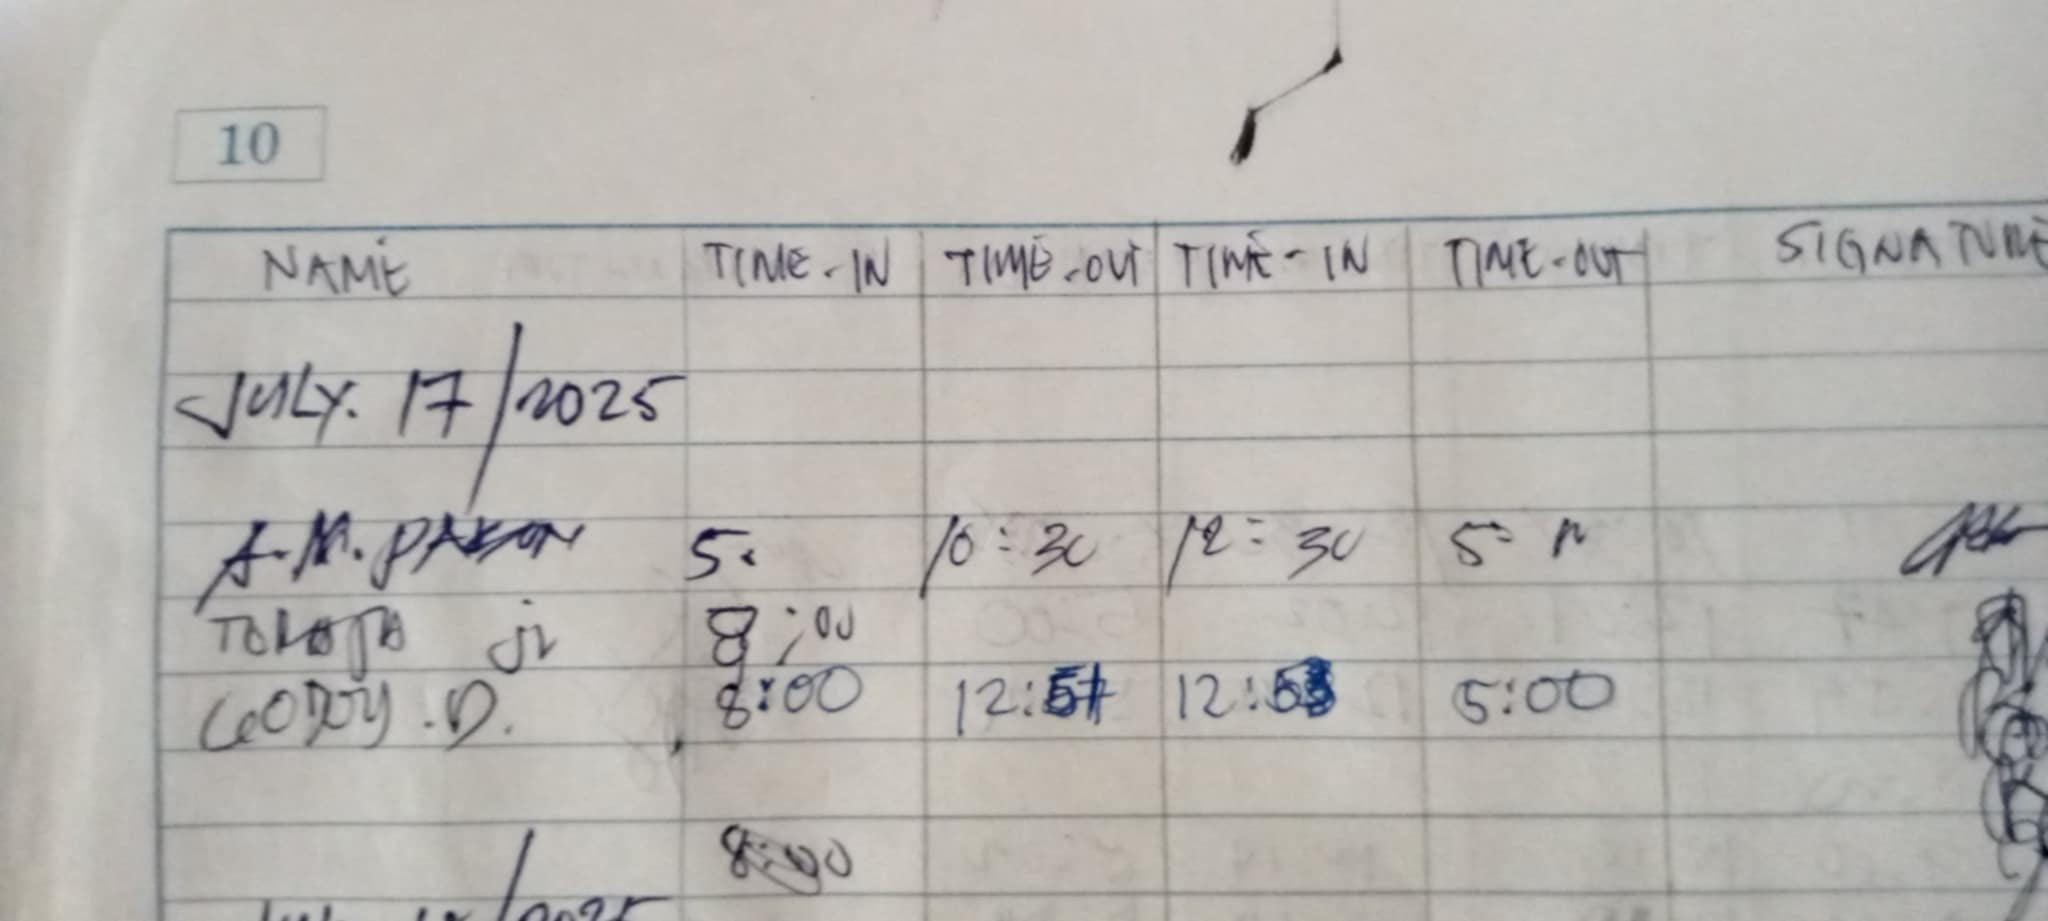 10
NAME TIME-IN TIME-OUT TIME-IN TIME-OUT SIGNATURE
JULY. 17/2025
A.M. 5: 10:30 12:30 5:
jr 8:00
D. 8:00 12:51 12:53 5:00
8:00
/2025